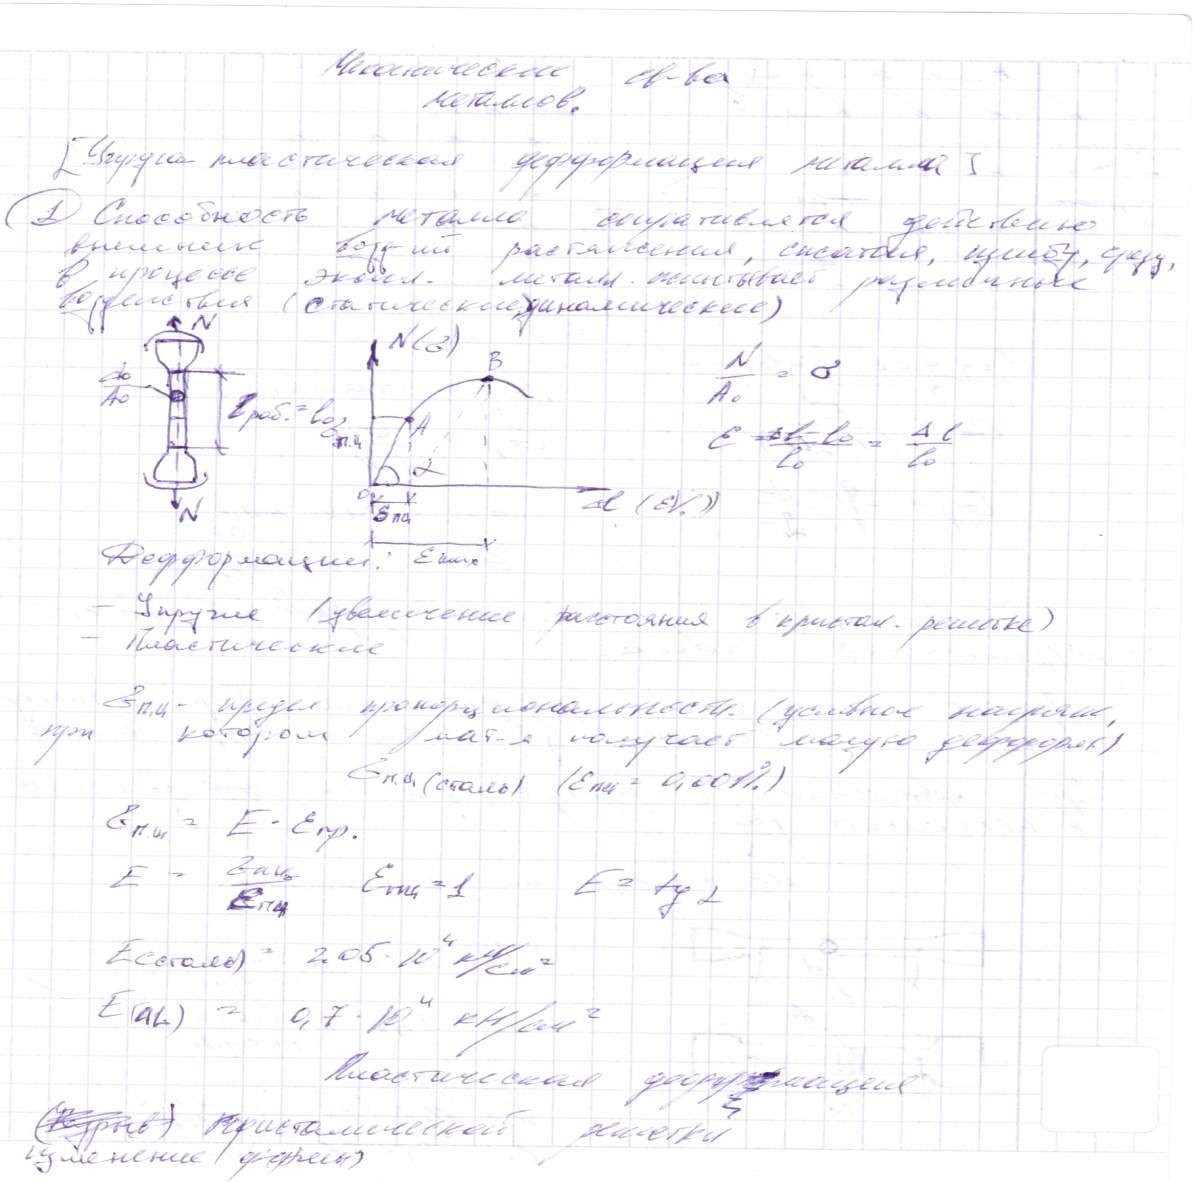 Механические св-ва
металлов.
[Упруго пластическая деформация металла]
1 Способность металла сопротивлятся действию
внешних возд-ий растяжения, сжатия, изгибу, срезу,
в процессе экспл. металл испытывает различные
воздействия (статические, динамические)
N
d₀
A₀
l раб. = l₀
N
N(σ)
B
σп.ц
A
α
0
εпц
Δl (ε%)
N/A₀ = σ
ε = l-l₀/l₀ = Δl/l₀
Дефформации:
- Упругие (увеличение расстояния в кристал. решетке)
- Пластические
σп.ц - предел пропорциональности. (условное напряж,
при котором мат-л получает малую дефформ)
σп.ц (сталь) (εпц = 0,001%)
σп.ц = E · εпр.
E = σпц/εпц εпц = 1 E = tg α
E(сталь) = 2.05 · 10⁴ кН/см²
E(AL) = 0,7 · 10⁴ кН/см²
Пластическая дефформация
кристалической решетки
изменение формы)